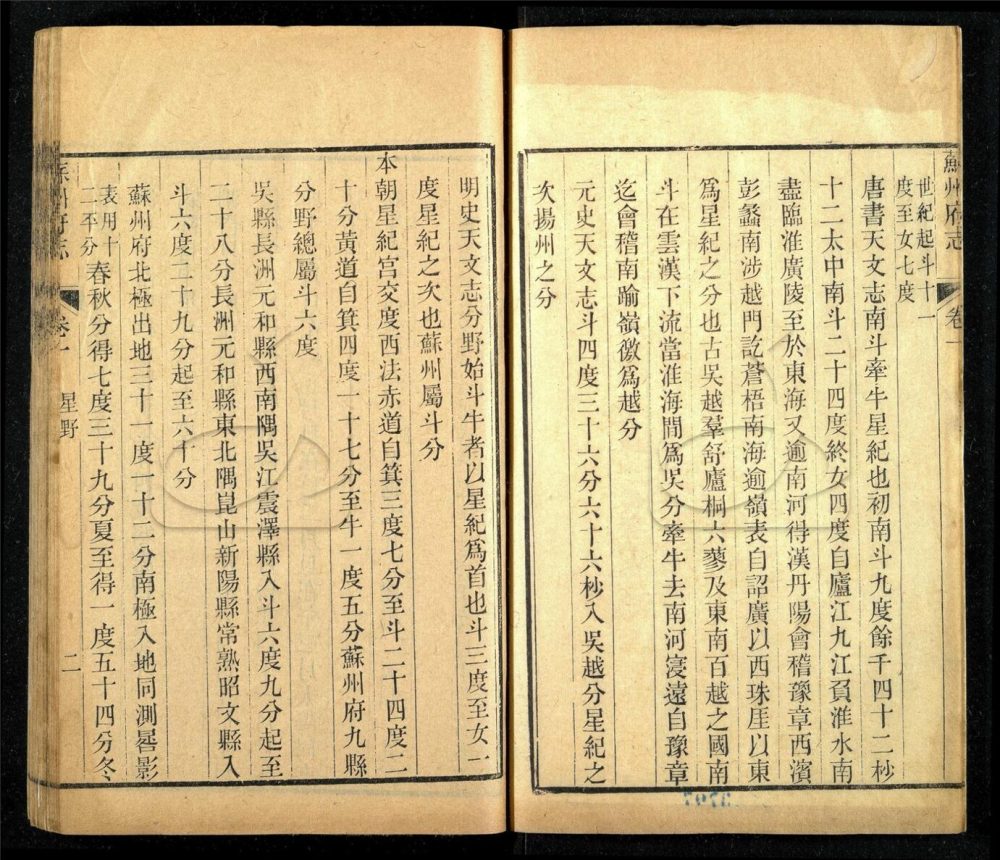 蘇州府志
卷一
世紀起斗十一
度至女七度
唐書天文志南斗牽牛星紀也初南斗九度餘千四十二杪
十二太中南斗二十四度終女四度自廬江九江負淮水南
盡臨淮廣陵至於東海又逾南河得漢丹陽會稽豫章西濱
彭蠡南涉越門訖蒼梧南海逾嶺表自詔廣以西珠厓以東
爲星紀之分也古吳越羣舒廬桐六蓼及東南百越之國南
斗在雲漢下流當淮海間爲吳分牽牛去南河寖遠自豫章
迄會稽南踰嶺徼爲越分
元史天文志斗四度三十六分六十六杪入吳越分星紀之
次揚州之分
明史天文志分野始斗牛者以星紀爲首也斗三度至女一
度星紀之次也蘇州屬斗分
本朝星紀宮交度西法赤道自箕三度七分至斗二十四度二
十分黃道自箕四度一十七分至牛一度五分蘇州府九縣
分野總屬斗六度
吳縣長洲元和縣西南隅吳江震澤縣入斗六度九分起至
二十八分長洲元和縣東北隅崑山新陽縣常熟昭文縣入
斗六度二十九分起至六十分
蘇州府北極出地三十一度一十二分南極入地同測晷影
表用十
二平分
春秋分得七度三十九分夏至得一度五十四分冬
蘇州府志
卷一
星野
二